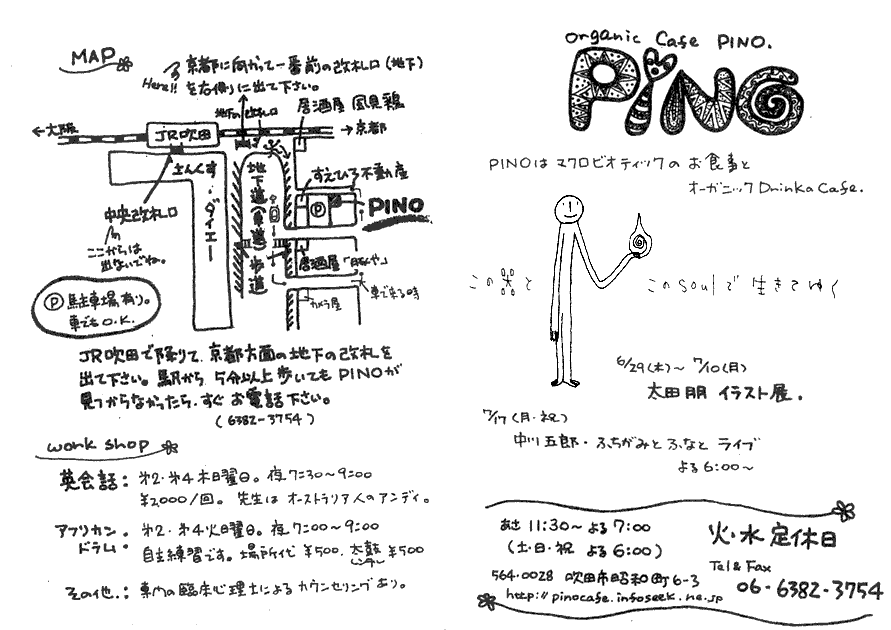 MAP
Here!!
京都に向かって一番前の改札口(地下)
を右側りに出て下さい。
地下の改札口
居酒屋 風見鶏
←大阪
JR吹田
→京都
さんくす・ダイエー
地下道(車道)
歩道
すえひろ不動産
P
PINO
中央改札口
ここからは
出ないでね。
居酒屋
カメラ屋
車で来る時
P 駐車場有り。
車でもO.K.
JR吹田で降りて、京都方面の地下の改札を
出て下さい。駅から、5分以上歩いてもPINOが
見つからなかったら、すぐお電話下さい。
(6382-3754)
work shop
英会話: 第2・第4木曜日。夜7:30~9:00
¥2,000/回。先生はオーストラリア人のアンディ。
アフリカン・ 第2・第4火曜日。夜7:00~9:00
ドラム: 自主練習です。場所代 ¥500. 太鼓レンタル ¥500
その他.: 専門の臨床心理士によるカウンセリングあり。
organic Cafe PINO.
PiNO
PINOは マクロビオティックの お食事と
オーガニック Drinkの Cafe.
この 米 と
この soul で 生きてゆく
6/29(木)~ 7/10(月)
太田朋 イラスト展.
7/17(月・祝)
中川五郎・ふちがみとふなと ライブ
よる 6:00~
あさ 11:30~ よる 7:00
(土・日・祝 よる 6:00)
火・水 定休日
564-0028 吹田市昭和町6-3
Tel & Fax
06-6382-3754
http://pinocafe.infoseek.ne.jp